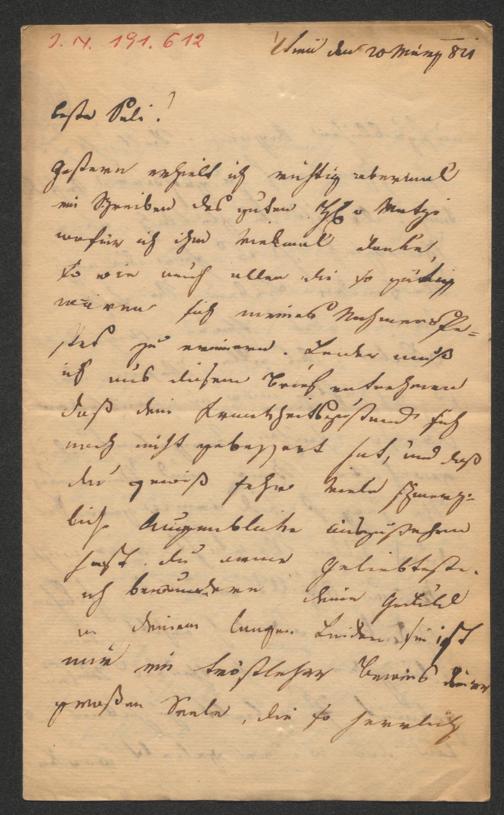 J. N. 191.612
Wien den 20 März 821
beste Pali!
Gestern erhielt ich richtig abermal
ein Schreiben des guten H v Metzi
wofür ich ihm vielmal danke,
so wie auch allen die so gütig
waren sich meines Nahmensfe=
stes zu erinern. Leider muß
ich aus diesem Brief entnehmen
daß dein Krankheitszustand sich
noch nicht gebessert hat, und daß
du gewiß sehr viele schmerz=
liche Augenblike auszustehen
hast. du arme Geliebteste.
ich bewundere deine Geduld
in deinem langen Leiden sie ist
mir ein tröstlicher Beweis deiner
großen Seele, die so herrlich